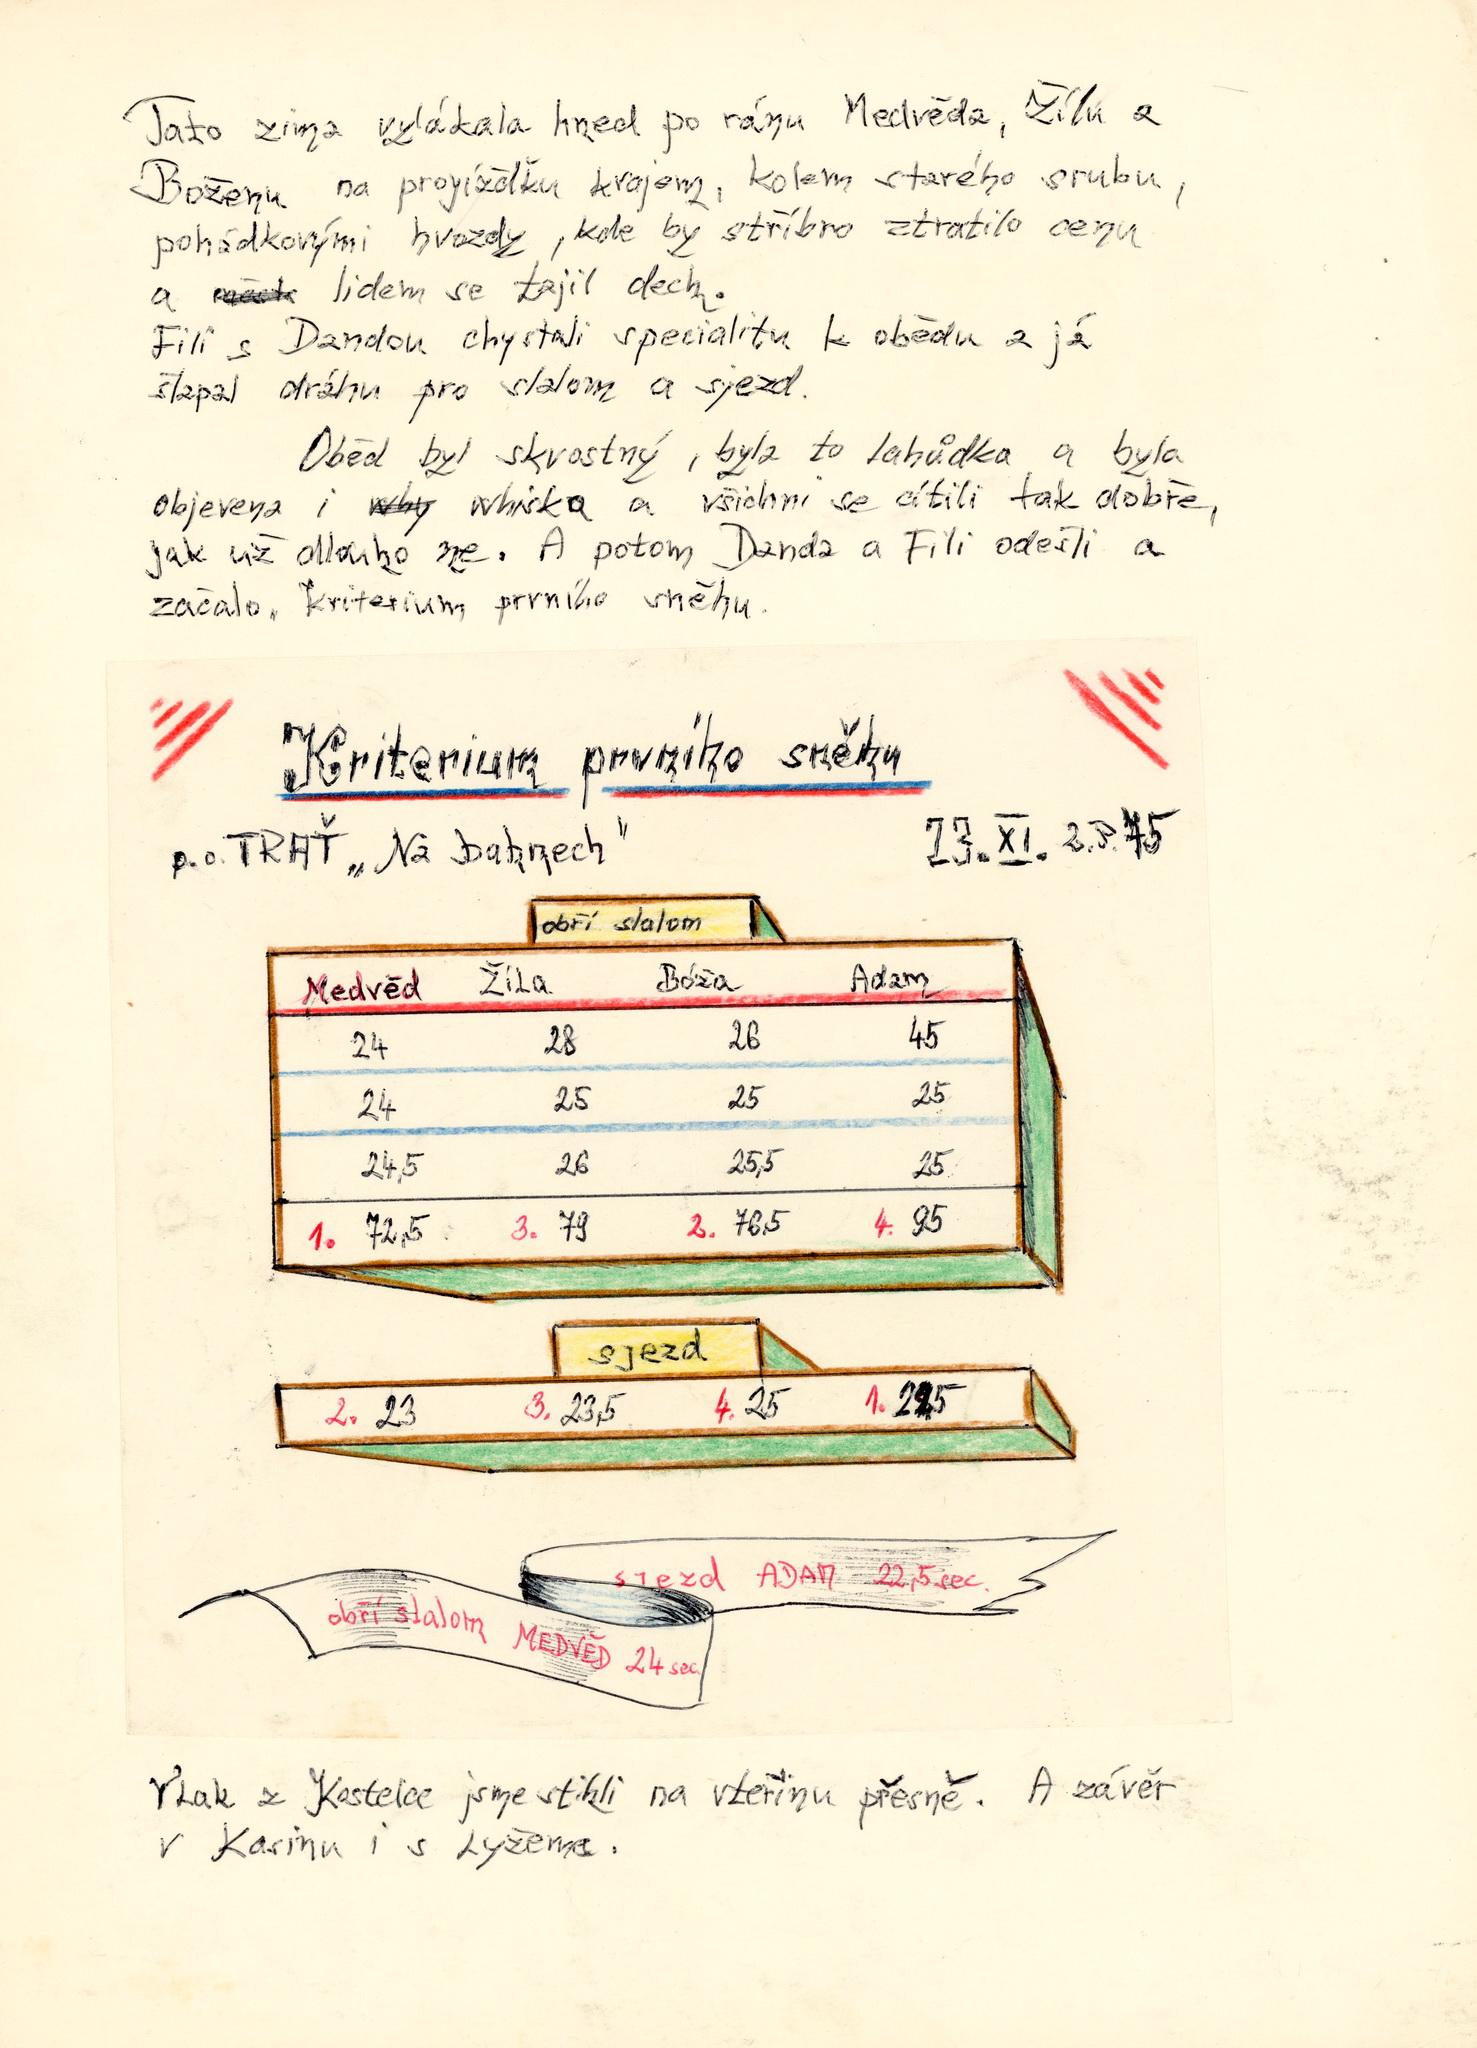 Tato zima vylákala hned po ránu Medvěda, Žílu a
Boženu na projížďku krajem, kolem starého srubu,
pohádkovými hvozdy, kde by stříbro ztratilo cenu
a lidem se tajil dech.
Fili s Dandou chystali specialitu k obědu a já
šlapal dráhu pro slalom a sjezd.
Oběd byl skvostný, byla to lahůdka a byla
objevena i whiska a všichni se cítili tak dobře,
jak už dlouho ne. A potom Danda a Fili odešli a
začalo „Kriterium prvního sněhu.
Kriterium prvního sněhu
p.o. TRAŤ „Na bahnech"
23. XI. L.P. 75
obří slalom
Medvěd Žíla Bóža Adam
24 28 26 45
24 25 25 25
24,5 26 25,5 25
1. 72,5 3. 79 2. 76,5 4. 95
sjezd
2. 23 3. 23,5 4. 25 1. 22,5
sjezd ADAM 22,5 sec.
obří slalom MEDVĚD 24 sec
Vlak z Kostelce jsme stihli na vteřinu přesně. A závěr
v Kasinu i s lyžema.